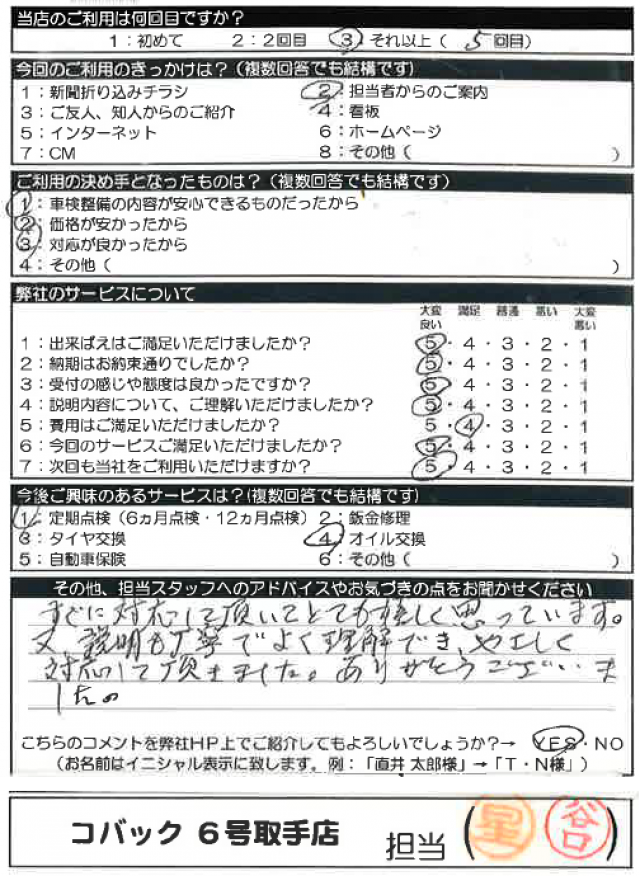 当店のご利用は何回目ですか?
1:初めて 2:2回目 3:それ以上( 5 回目)
今回のご利用のきっかけは?(複数回答でも結構です)
1:新聞折り込みチラシ 2:担当者からのご案内
3:ご友人、知人からのご紹介 4:看板
5:インターネット 6:ホームページ
7:CM 8:その他( )
ご利用の決め手となったものは?(複数回答でも結構です)
1:車検整備の内容が安心できるものだったから
2:価格が安かったから
3:対応が良かったから
4:その他( )
弊社のサービスについて
大変良い 満足 普通 悪い 大変悪い
1:出来ばえはご満足いただけましたか? 5・4・3・2・1
2:納期はお約束通りでしたか? 5・4・3・2・1
3:受付の感じや態度は良かったですか? 5・4・3・2・1
4:説明内容について、ご理解いただけましたか? 5・4・3・2・1
5:費用はご満足いただけましたか? 5・4・3・2・1
6:今回のサービスご満足いただけましたか? 5・4・3・2・1
7:次回も当社をご利用いただけますか? 5・4・3・2・1
今後ご興味のあるサービスは?(複数回答でも結構です)
1:定期点検(6ヵ月点検・12ヵ月点検) 2:鈑金修理
3:タイヤ交換 4:オイル交換
5:自動車保険 6:その他( )
その他、担当スタッフへのアドバイスやお気づきの点をお聞かせください
すぐに対応して頂いてとても嬉しく思っています。
又、説明も丁寧でよく理解でき、やさしく
対応して頂きました。ありがとうございま
した。
こちらのコメントを弊社HP上でご紹介してもよろしいでしょうか?→ YES・NO
(お名前はイニシャル表示に致します。例:「直井 太郎様」→「T・N様」)
コバック 6号取手店 担当( 星 谷口 )